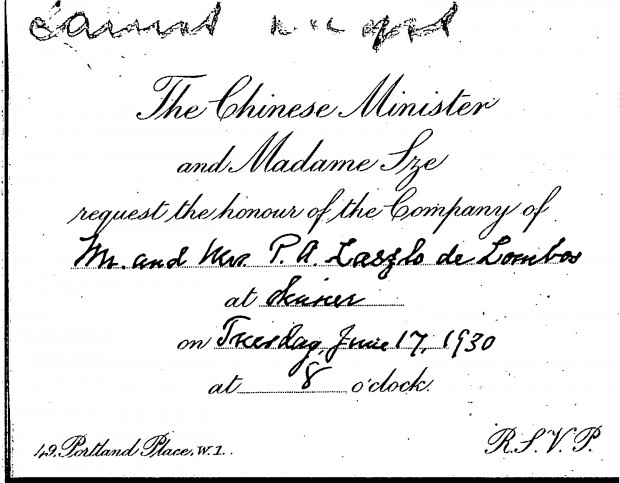 The Chinese Minister
and Madame Sze
request the honour of the Company of
Mr. and Mrs. P. A. Laszlo de Lombos
at dinner
on Tuesday, June 17, 1930
at 8 o'clock.
49, Portland Place, W.1.
R.S.V.P.